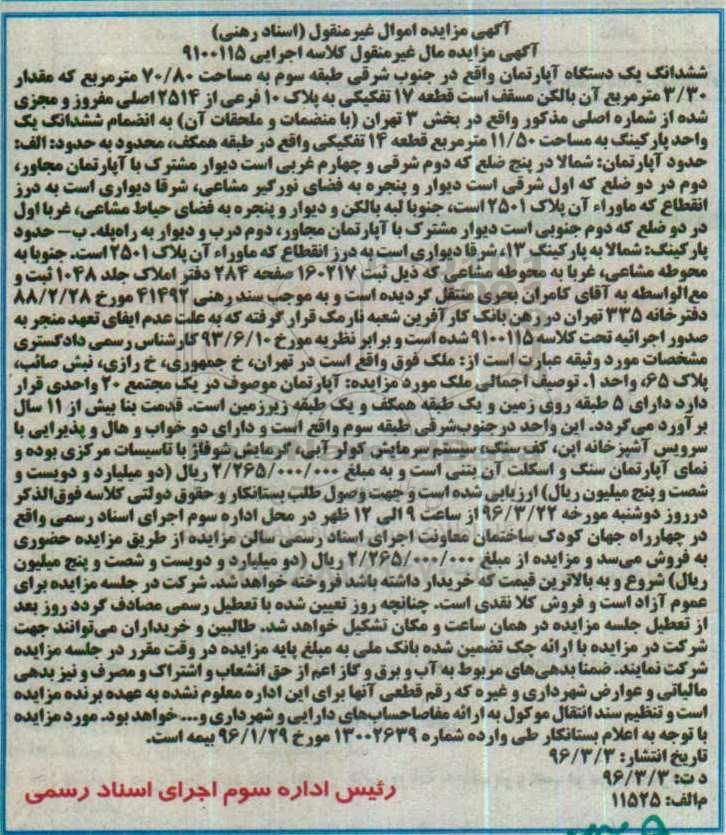 آگهی مزایده اموال غیرمنقول (اسناد رهنی)
آگهی مزایده مال غیرمنقول کلاسه اجرایی ۹۱۰۰۱۱۵
ششدانگ یک دستگاه آپارتمان واقع در جنوب شرقی طبقه سوم به مساحت ۷۰/۸۰ مترمربع که مقدار
۳/۳۰ مترمربع آن بالکن مسقف است قطعه ۱۷ تفکیکی به پلاک ۱۰ فرعی از ۲۵۱۴ اصلی مفروز و مجزی
شده از شماره اصلی مذکور واقع در بخش ۳ تهران (با منضمات و ملحقات آن) به انضمام ششدانگ یک
واحد پارکینگ به مساحت ۱۱/۵۰ مترمربع قطعه ۱۴ تفکیکی واقع در طبقه همکف، محدود به حدود: الف:
حدود آپارتمان: شمالا در پنج ضلع که دوم شرقی و چهارم غربی است دیوار مشترک با آپارتمان مجاور،
دوم در دو ضلع که اول شرقی است دیوار و پنجره به فضای نورگیر مشاعی، شرقا دیواری است به درز
انقطاع که ماوراء آن پلاک ۲۵۰۱ است، جنوبا لبه بالکن و دیوار و پنجره به فضای حیاط مشاعی، غربا اول
در دو ضلع که دوم جنوبی است دیوار مشترک با آپارتمان مجاور، دوم درب و دیوار به راه‌پله. ب– حدود
پارکینگ: شمالا به پارکینگ ۱۳، شرقا دیواری است به درز انقطاع که ماوراء آن پلاک ۲۵۰۱ است. جنوبا به
محوطه مشاعی، غربا به محوطه مشاعی که ذیل ثبت ۱۶۰۲۱۷ صفحه ۲۸۴ دفتر املاک جلد ۱۰۴۸ ثبت و
مع‌الواسطه به آقای کامران بحری منتقل گردیده است و به موجب سند رهنی ۴۱۴۹۲ مورخ ۸۸/۲/۲۸
دفترخانه ۳۳۵ تهران در رهن بانک کارآفرین شعبه نارمک قرار گرفته که به علت عدم ایفای تعهد منجر به
صدور اجرائیه تحت کلاسه ۹۱۰۰۱۱۵ شده است و برابر نظریه مورخ ۹۳/۶/۱۰ کارشناس رسمی دادگستری
مشخصات مورد وثیقه عبارت است از: ملک فوق واقع است در تهران، خ جمهوری، خ رازی، نبش صائب،
پلاک ۶۵، واحد ۱. توصیف اجمالی ملک مورد مزایده: آپارتمان موصوف در یک مجتمع ۲۰ واحدی قرار
دارد دارای ۵ طبقه روی زمین و یک طبقه همکف و یک طبقه زیرزمین است. قدمت بنا بیش از ۱۱ سال
برآورد می‌گردد. این واحد درجنوب‌شرقی طبقه سوم واقع است و دارای دو خواب و هال و پذیرایی با
سرویس آشپزخانه اپن، کف سنگ، سیستم سرمایش کولر آبی، گرمایش شوفاژ با تاسیسات مرکزی بوده و
نمای آپارتمان سنگ و اسکلت آن بتنی است و به مبلغ ۲/۲۶۵/۰۰۰/۰۰۰ ریال (دو میلیارد و دویست و
شصت و پنج میلیون ریال) ارزیابی شده است و جهت وصول طلب بستانکار و حقوق دولتی کلاسه فوق‌الذکر
درروز دوشنبه مورخه ۹۶/۳/۲۲ از ساعت ۹ الی ۱۲ ظهر در محل اداره سوم اجرای اسناد رسمی واقع
در چهارراه جهان کودک ساختمان معاونت اجرای اسناد رسمی سالن مزایده از طریق مزایده حضوری
به فروش می‌سد و مزایده از مبلغ ۲/۲۶۵/۰۰۰/۰۰۰ ریال (دو میلیارد و دویست و شصت و پنج میلیون
ریال) شروع و به بالاترین قیمت که خریدار داشته باشد فروخته خواهد شد. شرکت در جلسه مزایده برای
عموم آزاد است و فروش کلا نقدی است. چنانچه روز تعیین شده با تعطیل رسمی مصادف گردد روز بعد
از تعطیل جلسه مزایده در همان ساعت و مکان تشکیل خواهد شد. طالبین و خریداران می‌توانند جهت
شرکت در مزایده با ارائه چک تضمین شده بانک ملی به مبلغ پایه مزایده در وقت مقرر در جلسه مزایده
شرکت نمایند. ضمنا بدهی‌های مربوط به آب و برق و گاز اعم از حق انشعاب و اشتراک و مصرف و نیز بدهی
مالیاتی و عوارض شهرداری و غیره که رقم قطعی آنها برای این اداره معلوم نشده به عهده برنده مزایده
است و تنظیم سند انتقال موکول به ارائه مفاصاحساب‌های دارایی و شهرداری و... خواهد بود. مورد مزایده
با توجه به اعلام بستانکار طی وارده شماره ۱۳۰۰۲۶۳۹ مورخ ۹۶/۱/۲۹ بیمه است.
تاریخ انتشار: ۹۶/۳/۳
د ت: ۹۶/۳/۳
م‌الف: ۱۱۵۲۵
رئیس اداره سوم اجرای اسناد رسمی